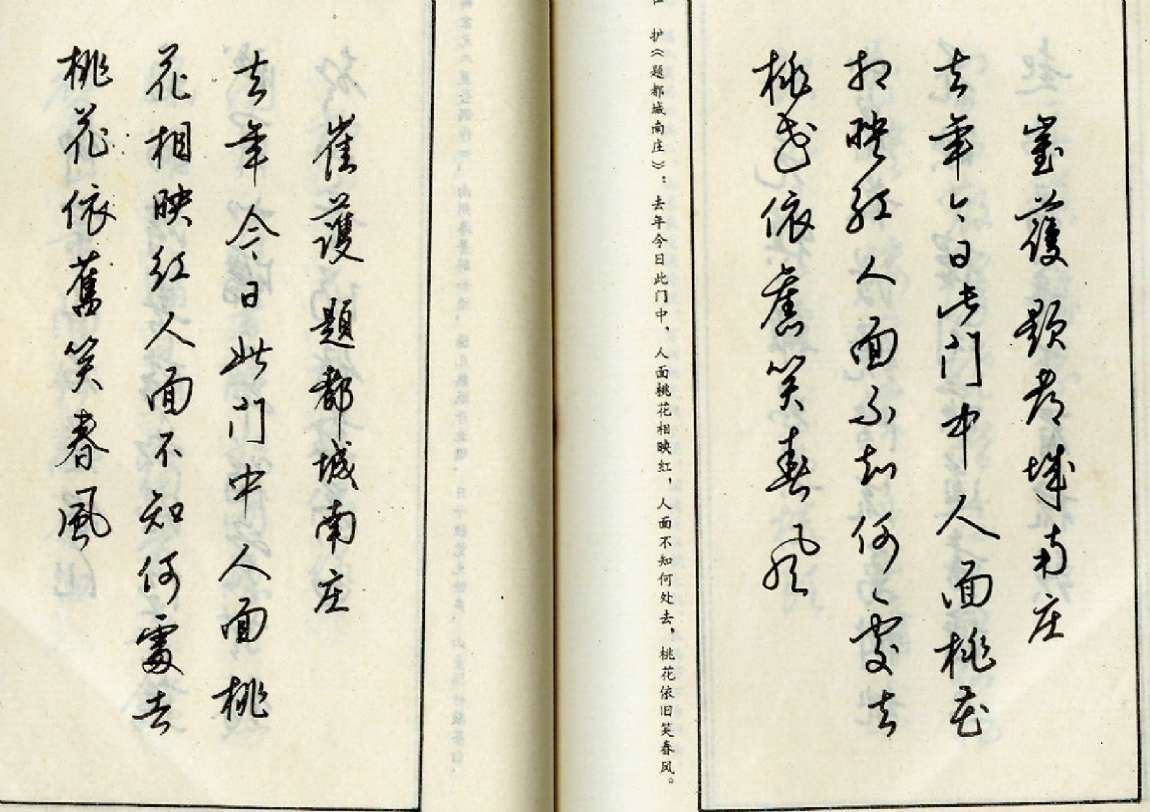 崔護題都城南庄
去年今日此门中人面桃花
相映红人面不知何處去
桃花依舊笑春风
护《题都城南庄》：去年今日此门中，人面桃花相映红，人面不知何处去，桃花依旧笑春风。
崔護題都城南庄
去年今日此门中人面桃
花相映红人面不知何處去
桃花依舊笑春風